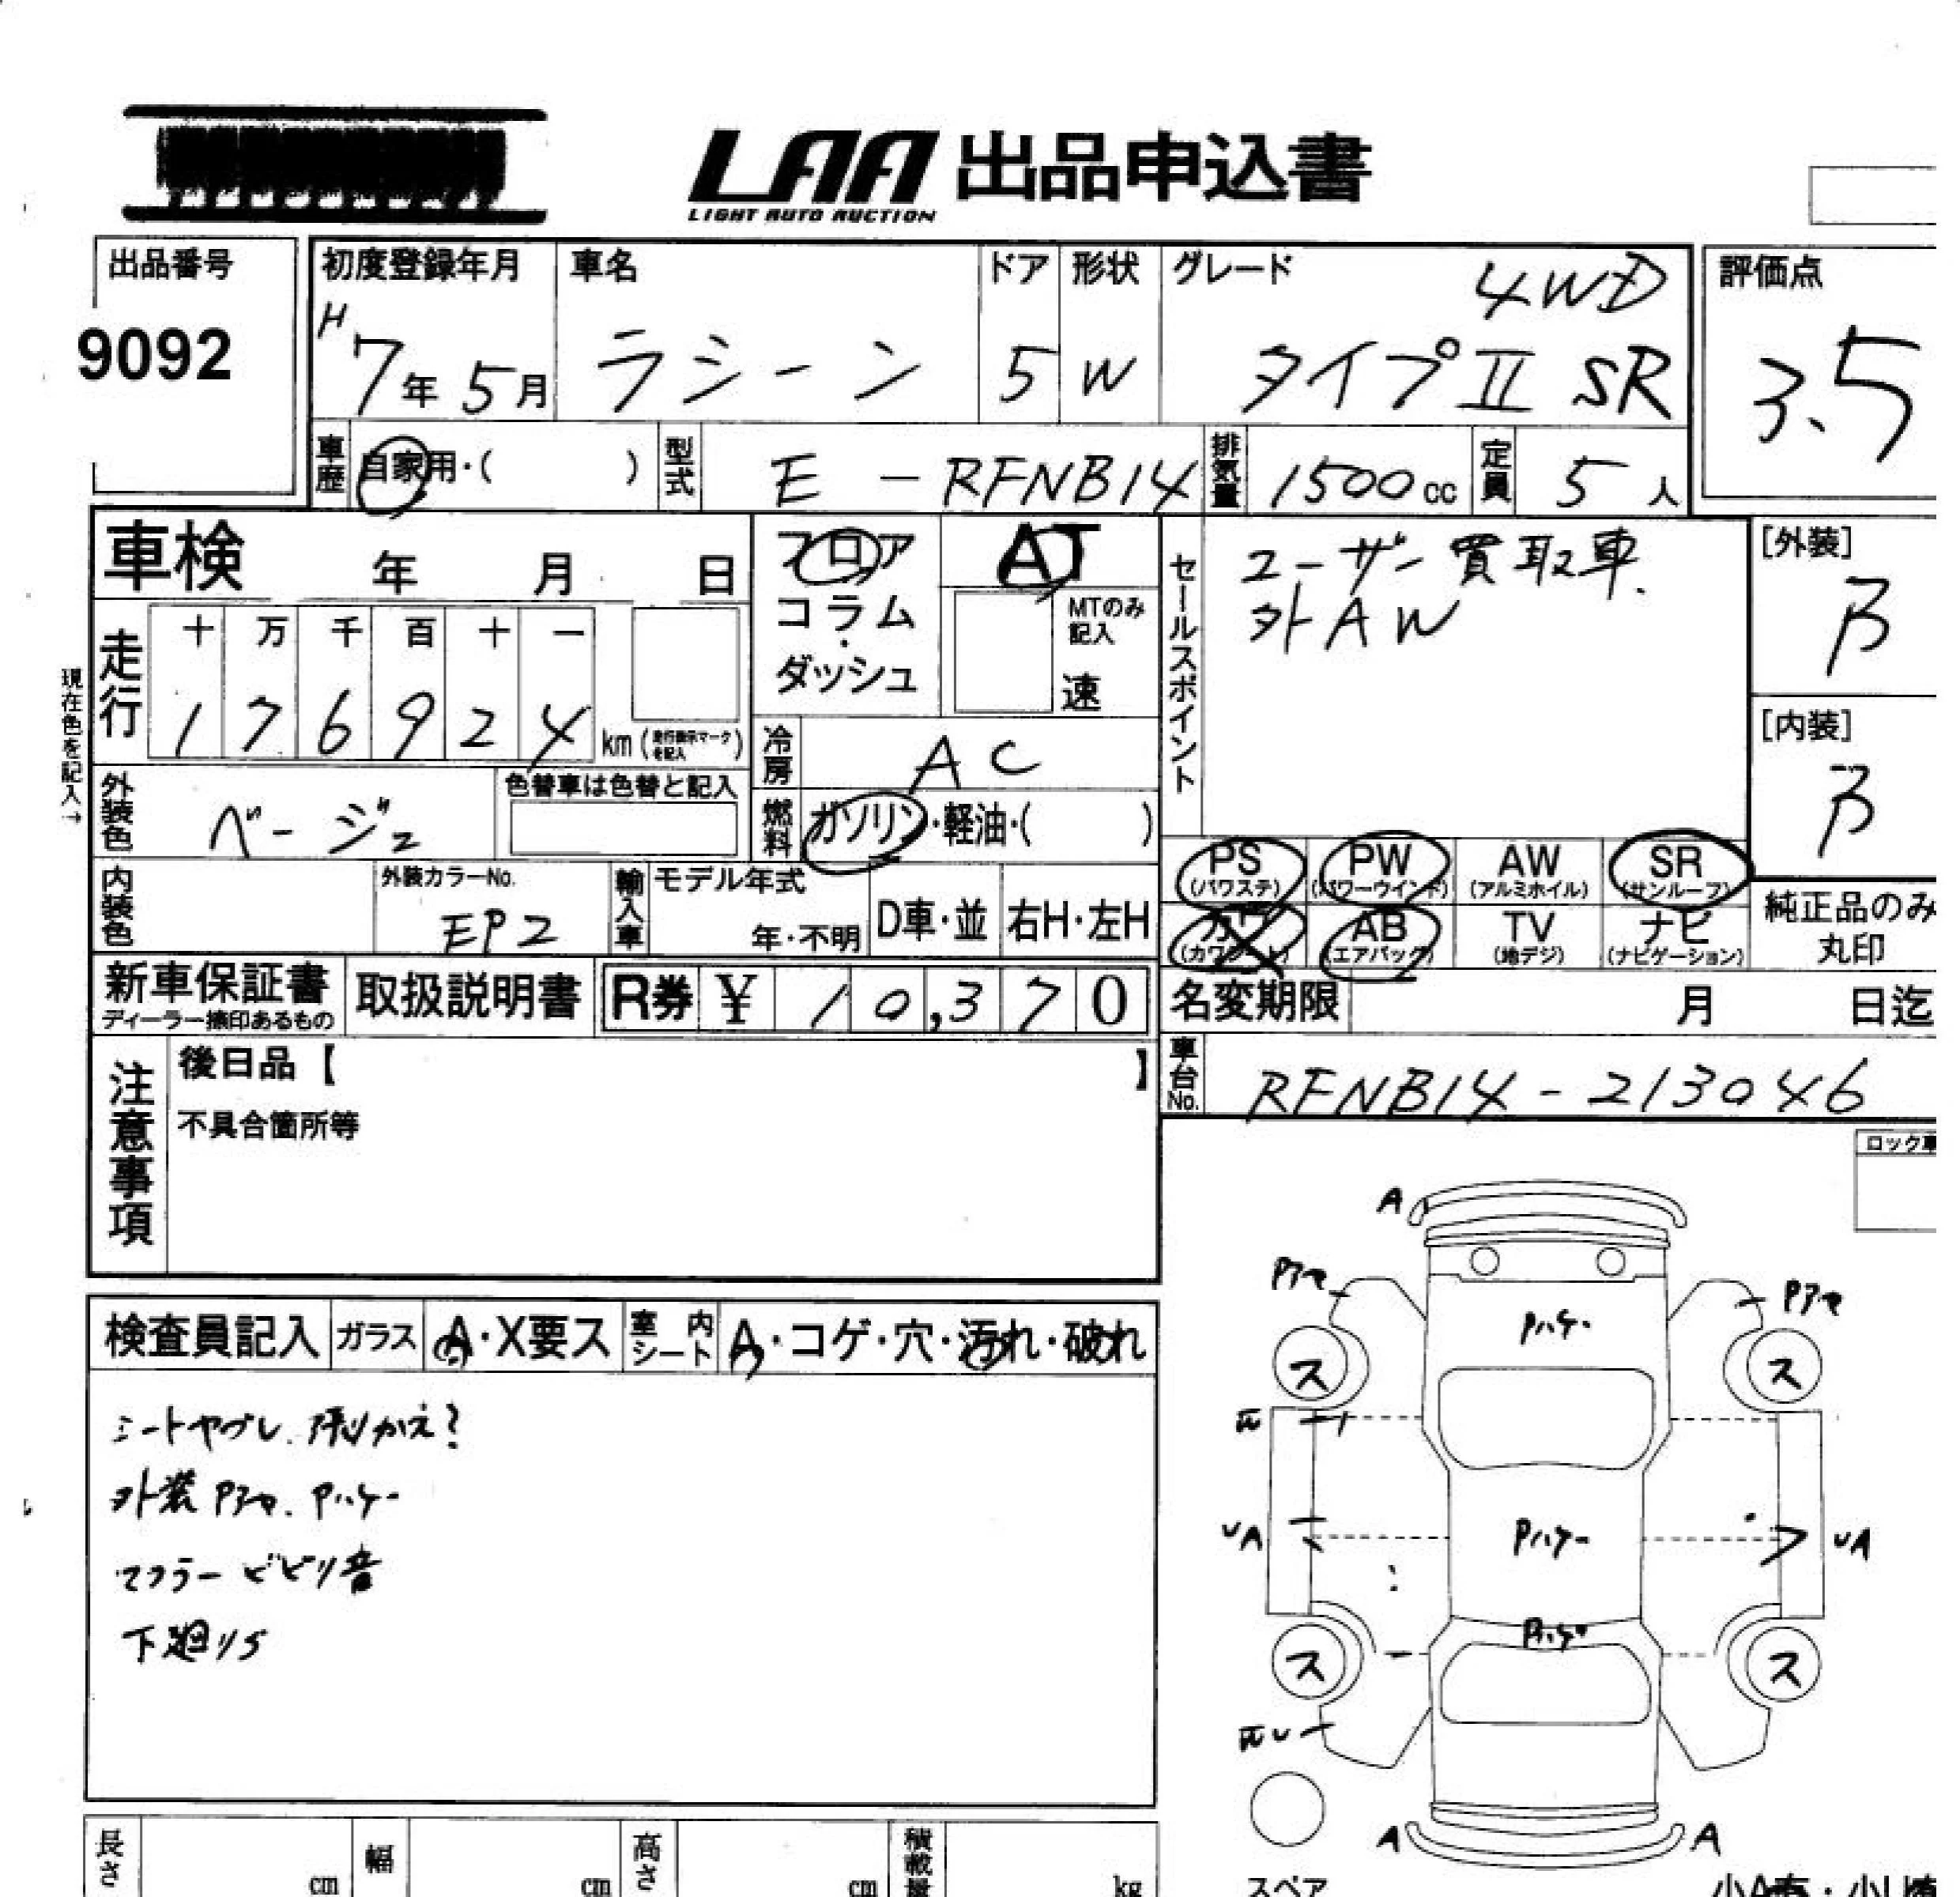 LAA 出品申込書
LIGHT AUTO AUCTION
出品番号
9092
初度登録年月
H
7年5月
車名
ラシーン
ドア
5
形状
W
グレード
4WD
タイプⅡ SR
評価点
3.5
車歴
自家用・( )
型式
E - RFNB14
排気量
1500cc
定員
5人
車検 年 月 日
走行
十 万 千 百 十 一
1 7 6 9 2 4 km (走行表示マークを記入)
現在色を記入→
外装色
ベージュ
色替車は色替と記入
内装色
外装カラーNo.
EP2
フロア
コラム
・
ダッシュ
AT
MTのみ
記入
速
冷房
AC
燃料
ガソリン・軽油・( )
輸入車
モデル年式
年・不明
D車・並
右H・左H
セールスポイント
ユーザー買取車.
外AW
[外装]
B
[内装]
B
PS
(パワステ)
PW
(パワーウインド)
AW
(アルミホイル)
SR
(サンルーフ)
カワ
(カワシート)
AB
(エアバック)
TV
(地デジ)
ナビ
(ナビゲーション)
純正品のみ
丸印
新車保証書
ディーラー捺印あるもの
取扱説明書
R券 ¥ 10,370
名変期限 月 日迄
注意事項
後日品【 】
不具合箇所等
車台No.
RFNB14-213046
ロック車
検査員記入
ガラス
A・X要ス
室内
シート
A・コゲ・穴・汚れ・破れ
シートヤブレ. 張りかえ?
外装Pアセ. Pハゲー
マフラービビリ音
下廻りS
A
Pアセ
Pアセ
Pハゲー
ス
ス
UA
Pハゲー
UA
Pハゲ
ス
ス
A
A
スペア
長さ
cm
幅
cm
高さ
cm
積載量
kg